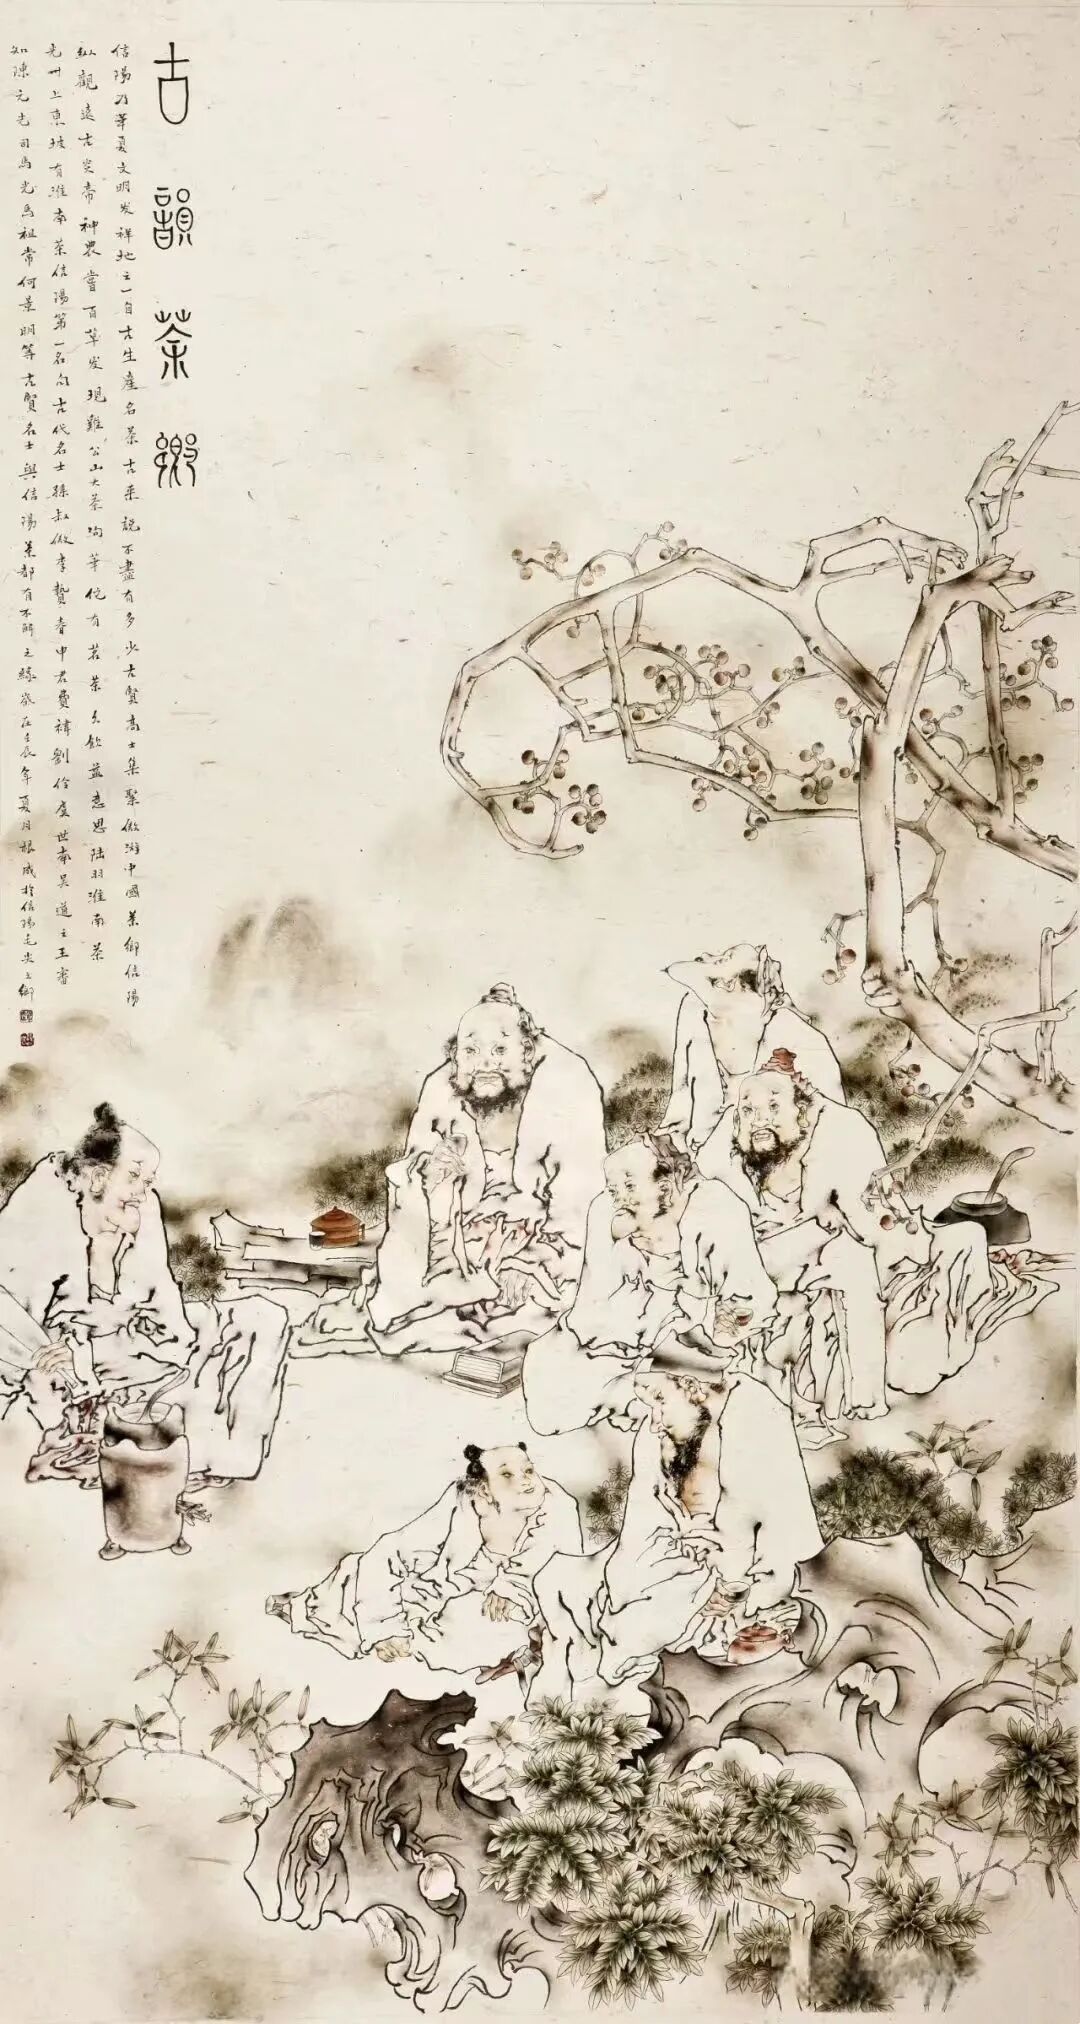 古韻茶鄉
信陽乃華夏文明发祥地之一自古生產名茶古来說不盡有多少古賢高士集聚倣游中國茶鄉信陽
纵觀遠古炎帝神農嘗百草发現雞公山大茶
陶華佗有苦茶久飲益意思陸羽淮南茶
光州上東坡有淮南茶信陽第一名句古代名士孫叔敖李贄春申君費禕劉伶盧世南吳道之王審
知陳元光司馬光馬祖常何景明等古賢名士與信陽茶都有不解之緣歲在壬辰年夏月根成於信陽毛尖之鄉